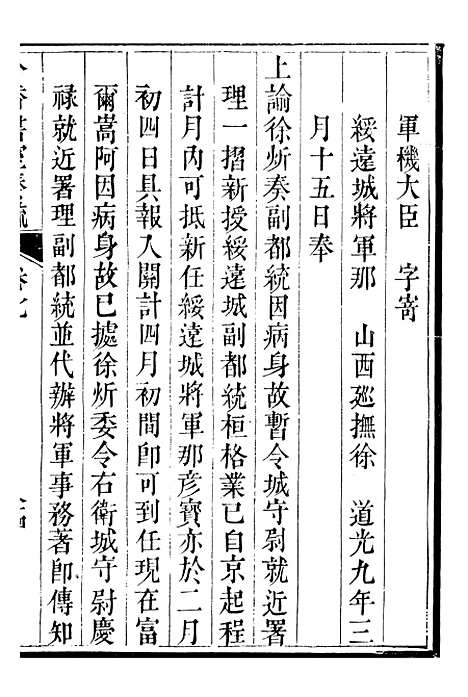 軍機大臣　字寄
綏遠城將軍那　山西巡撫徐　道光九年三
月十五日奉
上諭徐炘奏副都統因病身故暫令城守尉就近署
理一摺新授綏遠城副都統桓格業已自京起程
計月內可抵新任綏遠城將軍那彥寶亦於二月
初四日具報入關計四月初間卽可到任現在富
爾嵩阿因病身故已據徐炘委令右衛城守尉慶
祿就近署理副都統並代辦將軍事務著卽傳知